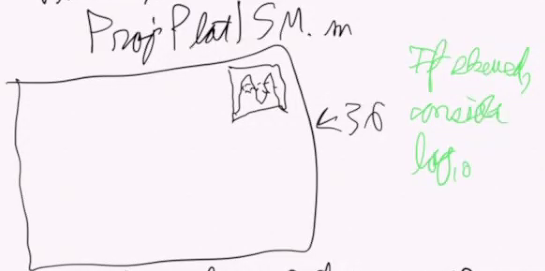 ProjPlat1SM.m
←36
If skewed,
consider
log10